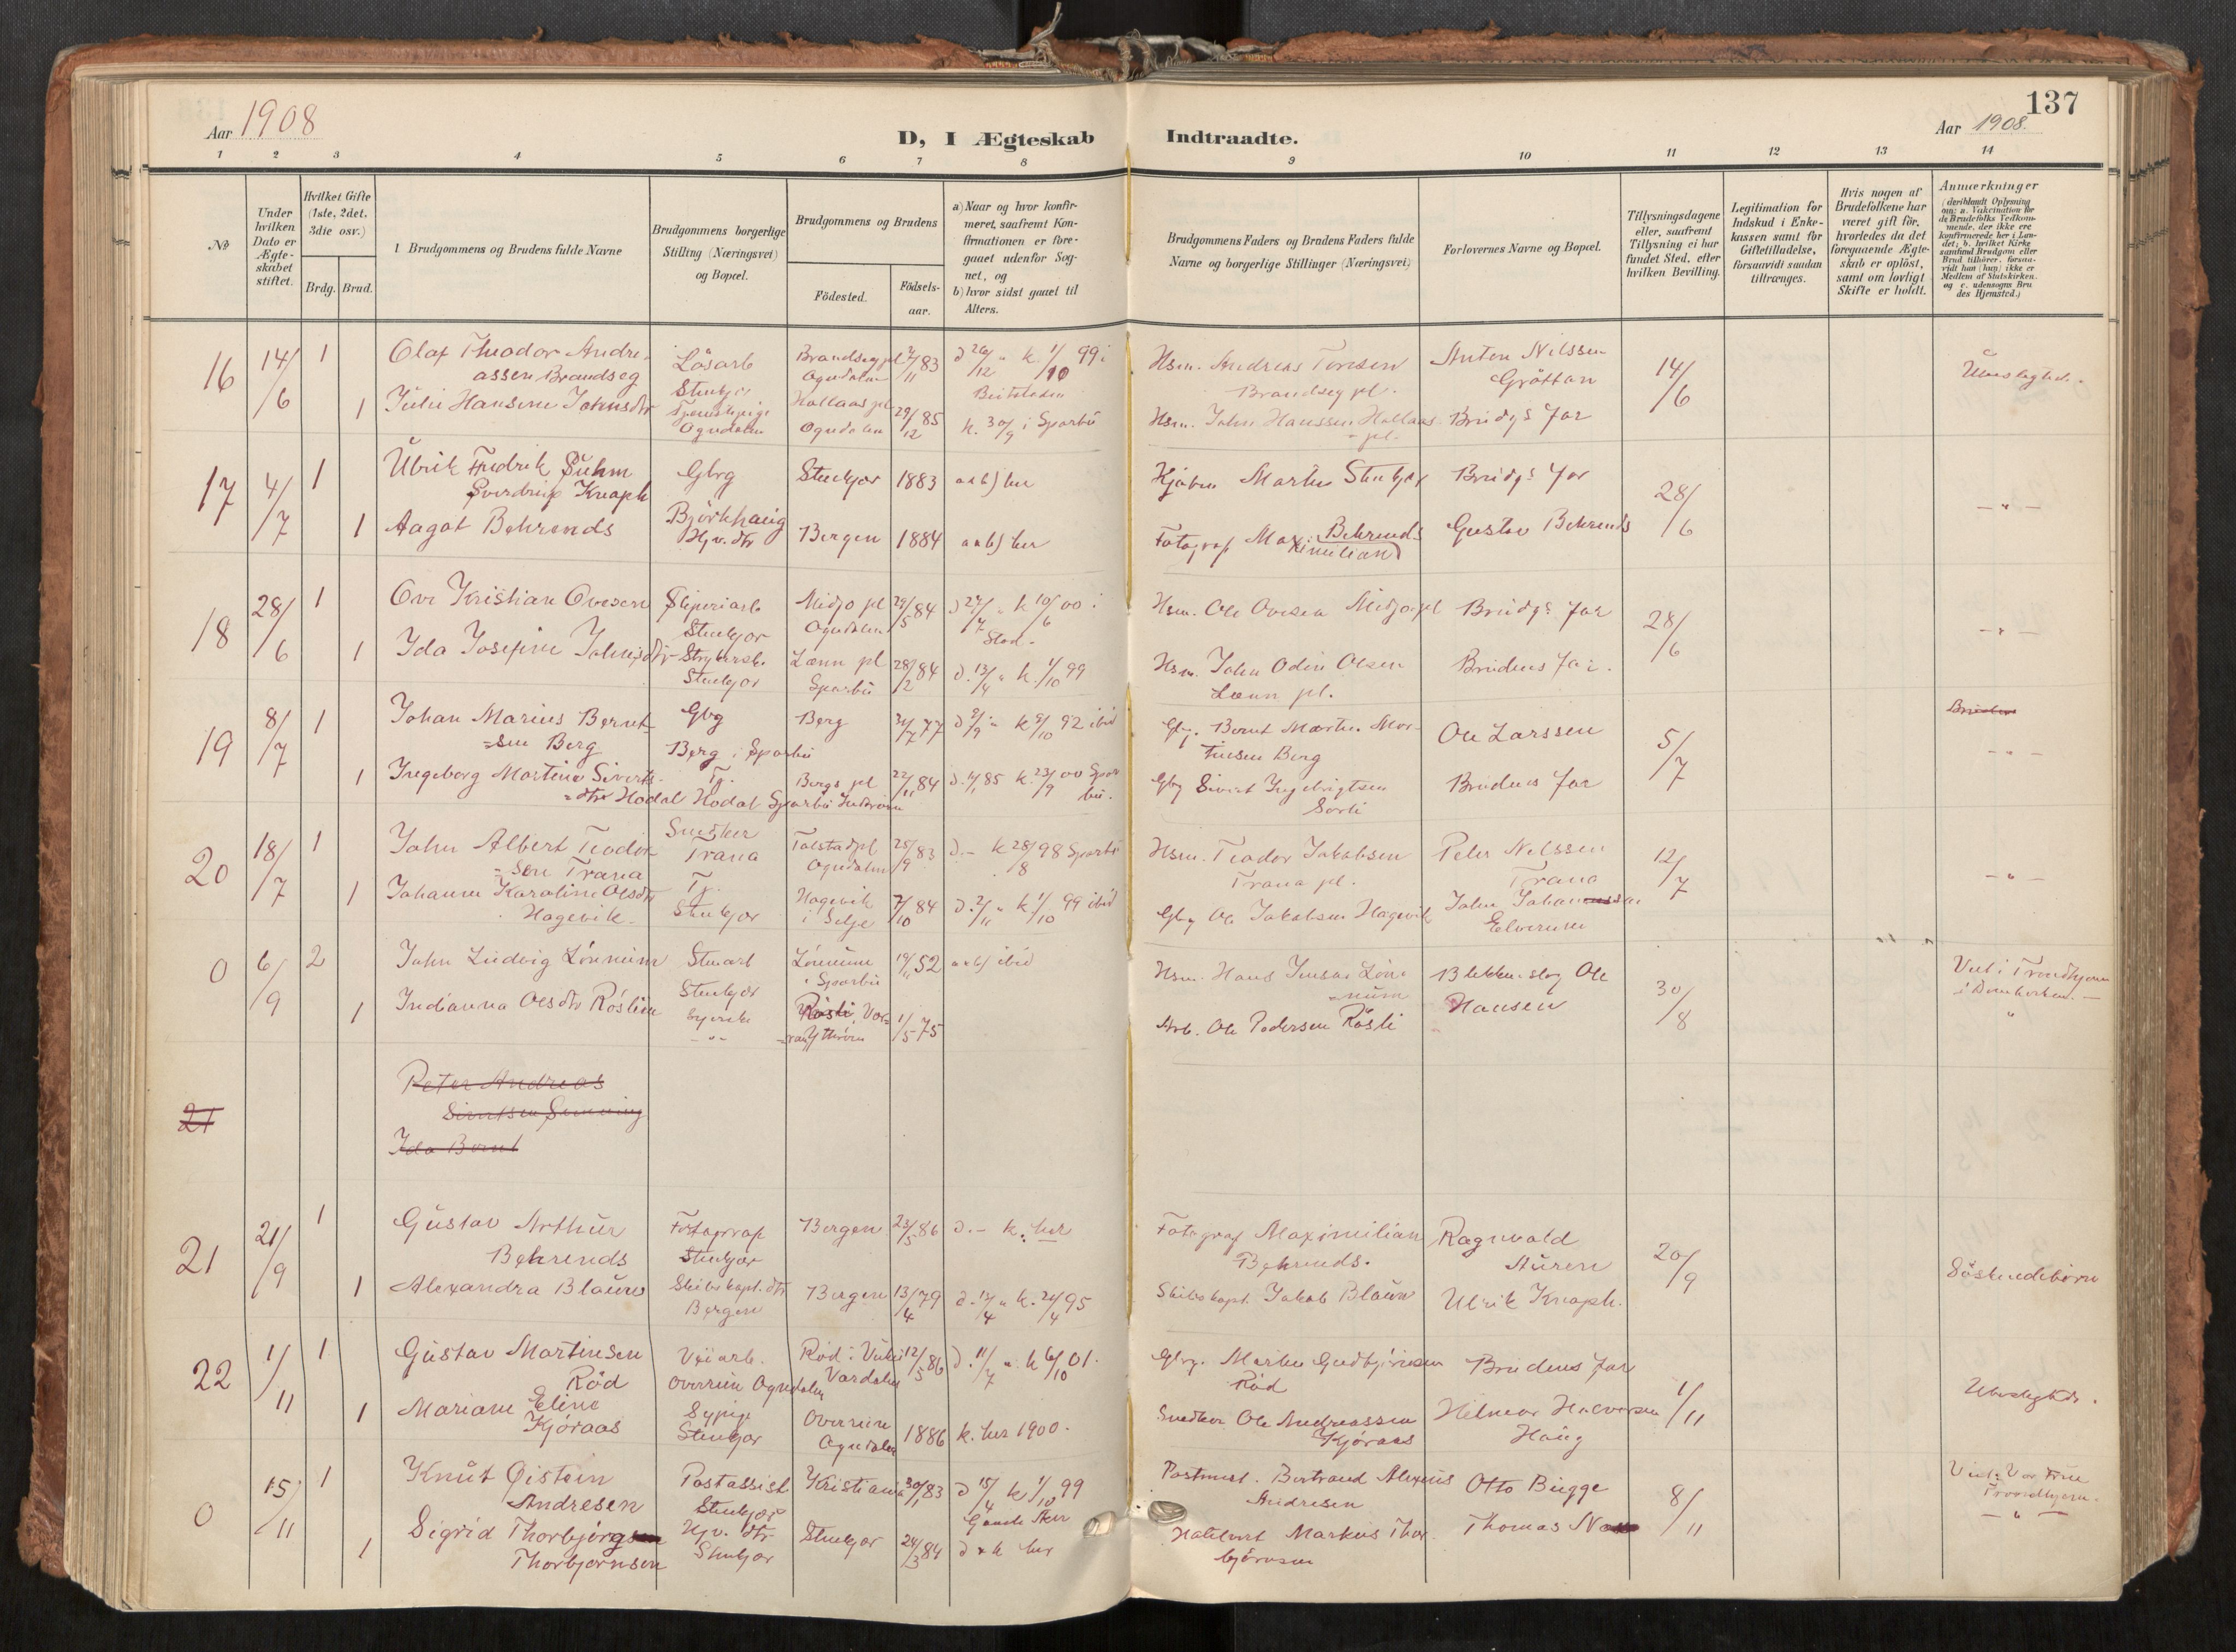 137
Aar 1908
D, I Ægteskab Indtraadte.
Aar 1908.
1 2 3 4 5 6 7 8 9 10 11 12 13 14
No
Under hvilken Dato er Ægteskabet stiftet.
Hvilket Gifte (1ste, 2det, 3die osv.)
Brdg. Brud.
Brudgommens og Brudens fulde Navne
Brudgommens borgerlige Stilling (Næringsvei) og Bopæl.
Brudgommens og Brudens
Födested.
Födsels-aar.
a) Naar og hvor konfir-
meret, saafremt Kon-
firmationen er fore-
gaaet udenfor Sog-
net, og
b) hvor sidst gaaet til
Alters.
Brudgommens Faders og Brudens Faders fulde
Navne og borgerlige Stillinger (Næringsvei)
Forlovernes Navne og Bopæl.
Tillysningsdagene
eller, saafremt
Tillysning ei har
fundet Sted, efter
hvilken Bevilling.
Legitimation for
Indskud i Enke-
kassen samt for
Giftetilladelse,
forsaavidt saadan
tiltrænges.
Hvis nogen af
Brudefolkene har
været gift för,
hvorledes da det
foregaaende Ægte-
skab er oplöst,
samt om lovligt
Skifte er holdt.
Anmærkninger
(deriblandt Oplysning
om: a. Vakcination for
de Brudefolks Vedkom-
mende, der ikke ere
konfirmerede her i Lan-
det; b. hvilket Kirke
samfund Brudgom eller
Brud tilhörer, forsaa-
vidt han (hun) ikke er
Medlem af Statskirken.
og c. udensogns Bru
des Hjemsted.)
16 14/6 1 Olaf Theodor Andre-
assen Brandseg
Lösarb Stenkjer
Brandseg pl Ogndalen
2/11 83
d 26/12 k 1/10 99 i
Beitstaden
Hsm. Andreas Toresen
Brandseg pl.
Anton Nilssen
Gröttan
14/6
Ubeslegtede.
1 Julie Hansine Johnsdtr
Tjenestepige Ogndalen
Hallaas pl Ogndalen
29/12 85
k. 30/9 i Sparbu
Hsm. John Hanssen Hallaas
pl.
Brudgs far
17 4/7 1 Ulrik Fredrik Suhm
Sverdrup Knaph
Gbrg
Björkhaug
Stenkjær 1883 a & b) her
Martin Stenkjær
Brudgs far
28/6
— " —
1 Aagot Behrends
Hjv. dtr
Bergen 1884 a & b) her
Fotograf Maximilian Behrends
Gustav Behrends
18 28/6 1 Ove Kristian Ovesen
Sliperiarb
Stenkjær
Midjo pl Ogndalen
29/5 84
d 27/7 k 10/6 00 i
Stod.
Hsm. Ole Ovesen Midjo pl
Brudgs far
28/6
— " —
1 Ida Josefine Johnsdtr
Strykersk.
Stenkjær
Lænn pl Sparbu
28/2 84
d. 13/4 k. 1/10 99
Hsm. John Odin Olsen
Lænn pl.
Brudens far.
19 8/7 1 Johan Marius Bernt-
sen Berg
Gbg
Berg i Sparbu
Berg
d 9/9 k 9/10 92 ibid
Gbg. Bernt Martin Mor-
tinsen Berg
Ole Larssen
5/7
— " —
1 Ingeborg Martine Siverts-
dtr Hodal Hodal Sparbu
Tj.
Bergs pl
22/11 84
d. 11/1 85 k. 23/9 00 Spar
bu.
Gbg Sivert Ingebrigtsen
Sorli
Brudens far
20 18/7 1 John Albert Teodor-
sen Trana
Snedker
Trana
Tolstad pl Ogndalen
25/9 83
d. - k 28/8 98 Sparbu
Hsm. Teodor Jakobsen
Trana pl.
Peter Nilssen
Trana
12/7
— " —
1 Johanne Karoline Olsdtr
Hagevik.
Tj.
Stenkjær
Hagevik
i Selje
7/10 84
d. 2/11 k 1/10 99 ibid
Gbg Ole Jakobsen Hagevik
John Johannessen
Elverum
0 6/9 2 John Ludvig Lönnum
Stenarb
Stenkjær
Lönnum
i Sparbu
19/11 52
a & b) ibid
Hsm. Hans Jensen Lön-
num
Blikkenslag Ole
Hansen
30/8
Viet i Trondhjem
i Domkirken. —
1 Indianna Olsdtr Röslien
Syerske
— " —
Rösli, Var-
an Ytterøen
1/5 75
Arb. Ole Pedersen Rösli
21
Peter Andreas
Ida Bernt
21 21/9 1 Gustav Arthur
Behrends
Fotograf
Stenkjær
Bergen
23/5 86
d. - k. her
Fotograf Maximilian
Behrends.
Ragnvald
Auren
20/9
Söskendebörn
1 Alexandra Blauw
Skibskapt. dtr
Bergen
Bergen
13/4 79
d. 17/4 k. 21/4 95
Skibskapt. Jakob Blauw
Ulrik Knaph.
22 1/11 1 Gustav Martinsen
Röd
Veiarb.
Overrein Ogndalen
Röd i Vuku
Værdalen
12/5 86
d. 11/7 k 6/10 01.
Gbrg. Martin Gudbjörnsen
Röd
Brudens far
1/11
Ubeslegtede.
1 Mariane Eline
Kjöraas
Sypige
Stenkjær
Overrein
Ogndalen
1886
k. her 1900.
Snedker Ole Andreassen
Kjöraas
Hilmar Halvorsen
Haug
0 15/11 1 Knut Øistein
Andresen
Postassist
Stenkjær
Kristiania
30/1 83
d 15/4 k 1/10 99
Gamle Aker
Postmest. Bertrand Alexius
Andresen
Otto Bugge
8/11
Viet i Vor Frue
Trondhjem.
— " —
1 Sigrid Thorbjörg
Thorbjornsen
Hjv. dtr.
Stenkjær
Stenkjær
24/3 84
d & k her
Markus Thor-
björnsen
Thomas